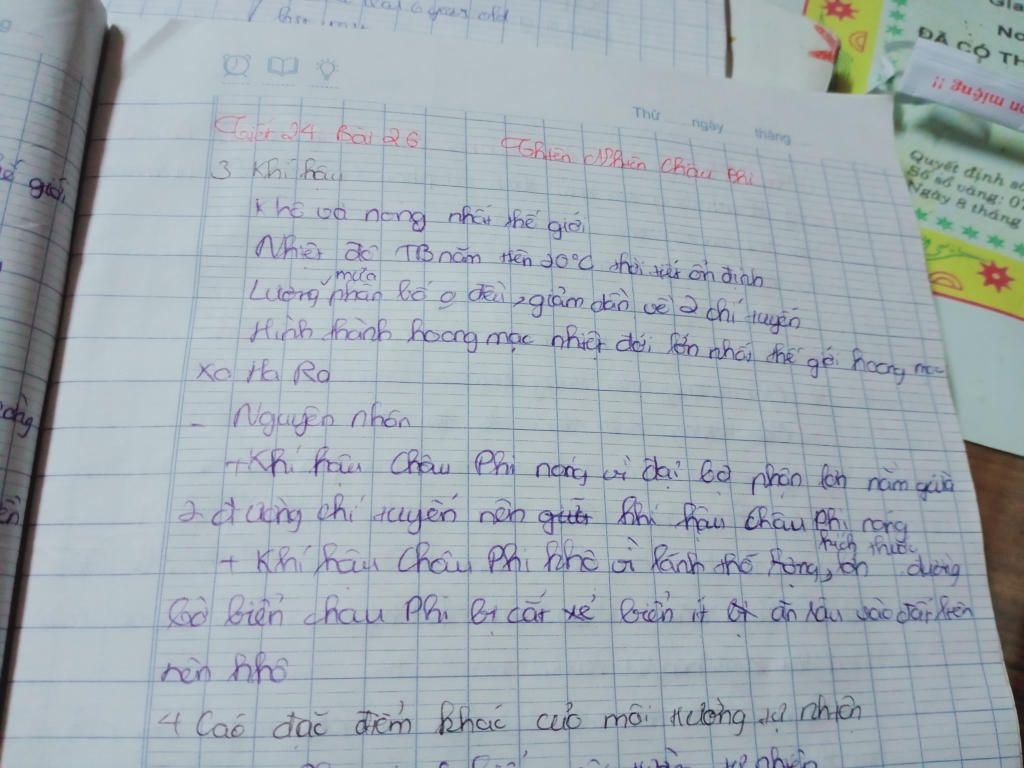 Thứ ngày tháng
Tiết 24 Bài 26 Thiên Nhiên Châu Phi
3 Khí hậu
Khô và nóng nhất thế giới
Nhiệt độ TB năm trên 20°C thời tiết ổn định
mưa
Lượng phân bố 0 đều, giảm dần về 2 chí tuyến
Hình thành hoang mạc nhiệt đới lớn nhất thế gới hoang mạc
Xa Ha Ra
- Nguyên nhân
+ Khí hậu Châu Phi nóng vì đại bộ phận lớn nằm giữa
2 đường chí tuyến nên khí hậu Châu Phi nóng
kích thước
+ Khí hậu Châu Phi khô vì lãnh thổ rộng, lớn đường
bờ biển châu Phi bị cắt xẻ biển ít ăn sâu vào đất liền
nên khô
4 Các đặc điểm khác của môi trường tự nhiên
ĐÃ CÓ TH
Quyết định số
Số sổ vàng: 0
Ngày 8 tháng
year old